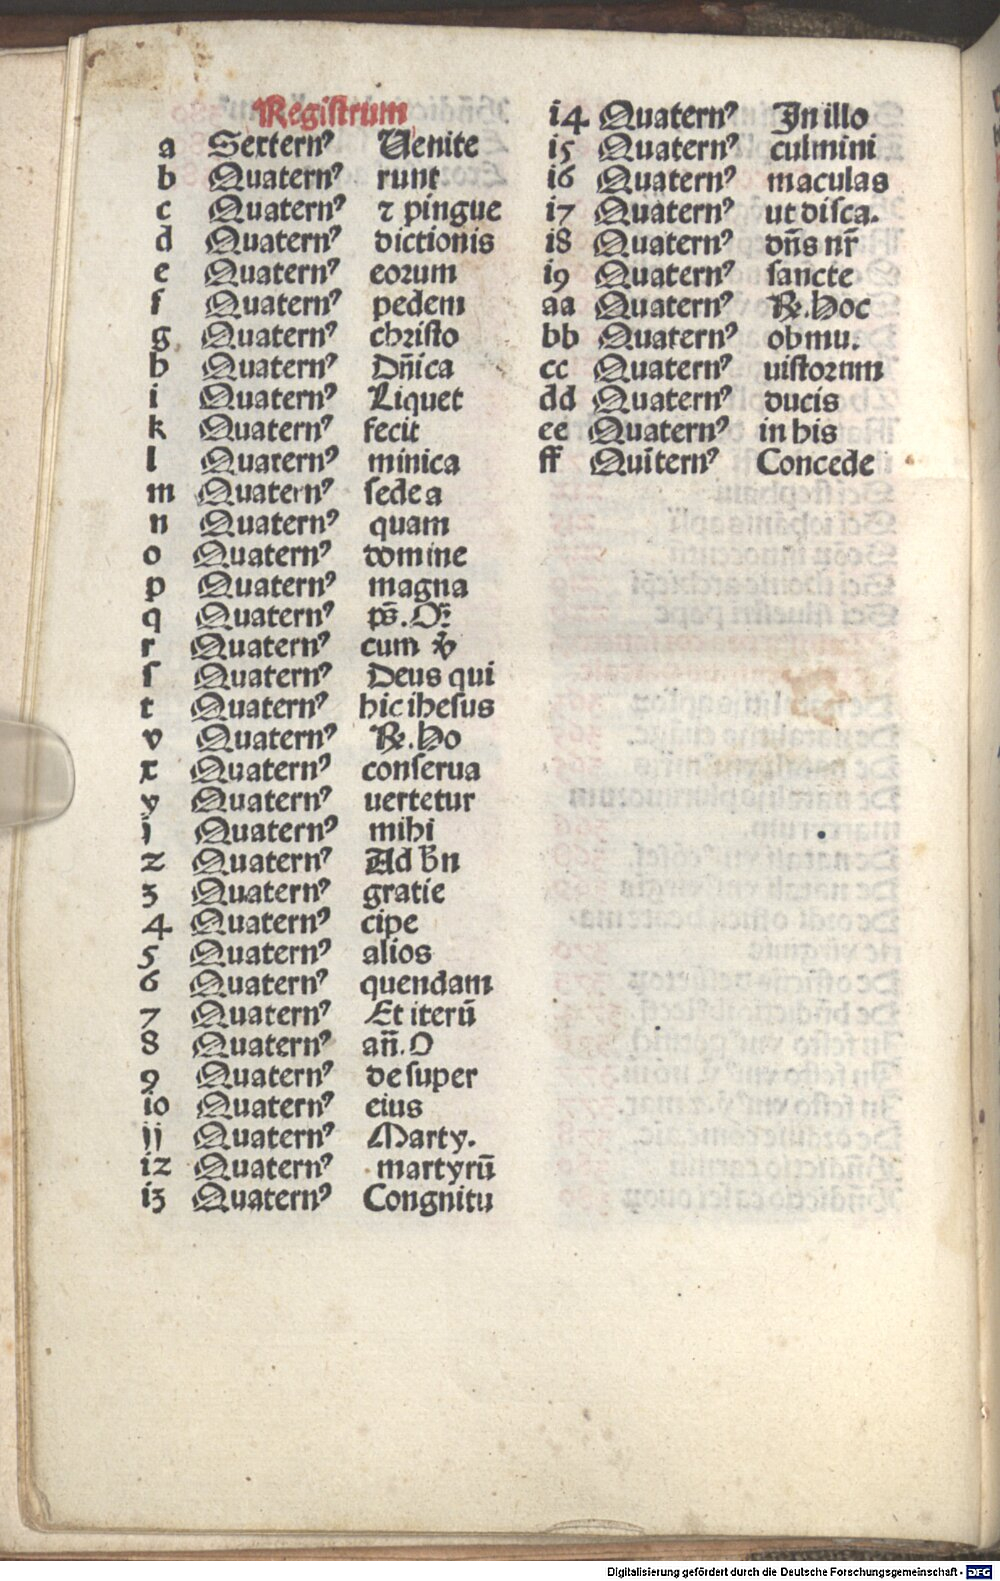 Registrum
a Sextern⁹ Uenite
b Quatern⁹ runt
c Quatern⁹ ⁊ pingue
d Quatern⁹ dictionis
e Quatern⁹ eorum
f Quatern⁹ pedem
g Quatern⁹ christo
h Quatern⁹ Dn̄ica
i Quatern⁹ Liquet
k Quatern⁹ fecit
l Quatern⁹ minica
m Quatern⁹ sede a
n Quatern⁹ quam
o Quatern⁹ domine
p Quatern⁹ magna
q Quatern⁹
r Quatern⁹ cum ℣
ſ Quatern⁹ Deus qui
t Quatern⁹ hic ihesus
v Quatern⁹ ℞. Ho
x Quatern⁹ conserua
y Quatern⁹ uertetur
j Quatern⁹ mihi
2 Quatern⁹ Ad bn̄
3 Quatern⁹ gratie
4 Quatern⁹ cipe
5 Quatern⁹ alios
6 Quatern⁹ quendam
7 Quatern⁹ Et iterū
8 Quatern⁹ an̄. O
9 Quatern⁹ desuper
io Quatern⁹ eius
jj Quatern⁹ Marty.
i2 Quatern⁹ martyrū
i3 Quatern⁹ Congnitu
i4 Quatern⁹ In illo
i5 Quatern⁹ culmini
i6 Quatern⁹ maculas
i7 Quatern⁹ ut disca.
i8 Quatern⁹ dn̄s nr̄
i9 Quatern⁹ sancte
aa Quatern⁹ ℞. Hoc
bb Quatern⁹ obmu.
cc Quatern⁹ uistorum
dd Quatern⁹ ducis
ee Quatern⁹ in his
ff Quītern⁹ Concede
Digitalisierung gefördert durch die Deutsche Forschungsgemeinschaft - DFG